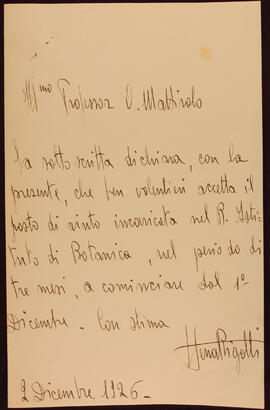 Ill.mo Professor O. Mattirolo
La sottoscritta dichiara, con la
presente, che ben volentieri accetta il
posto di aiuto incaricata nel R. Isti-
tuto di Botanica, nel periodo di
tre mesi, a cominciare dal 1º
Dicembre - Con stima
Rigotti
2 Dicembre 1926 -